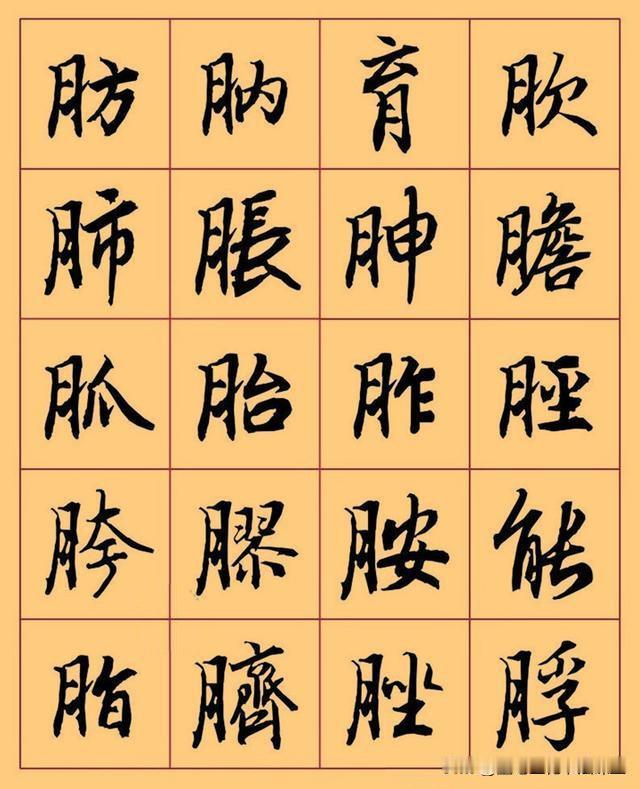 肪肭育肷
肺脹胂膽
胍胎胙脛
胯膠胺能
脂臍脞脬